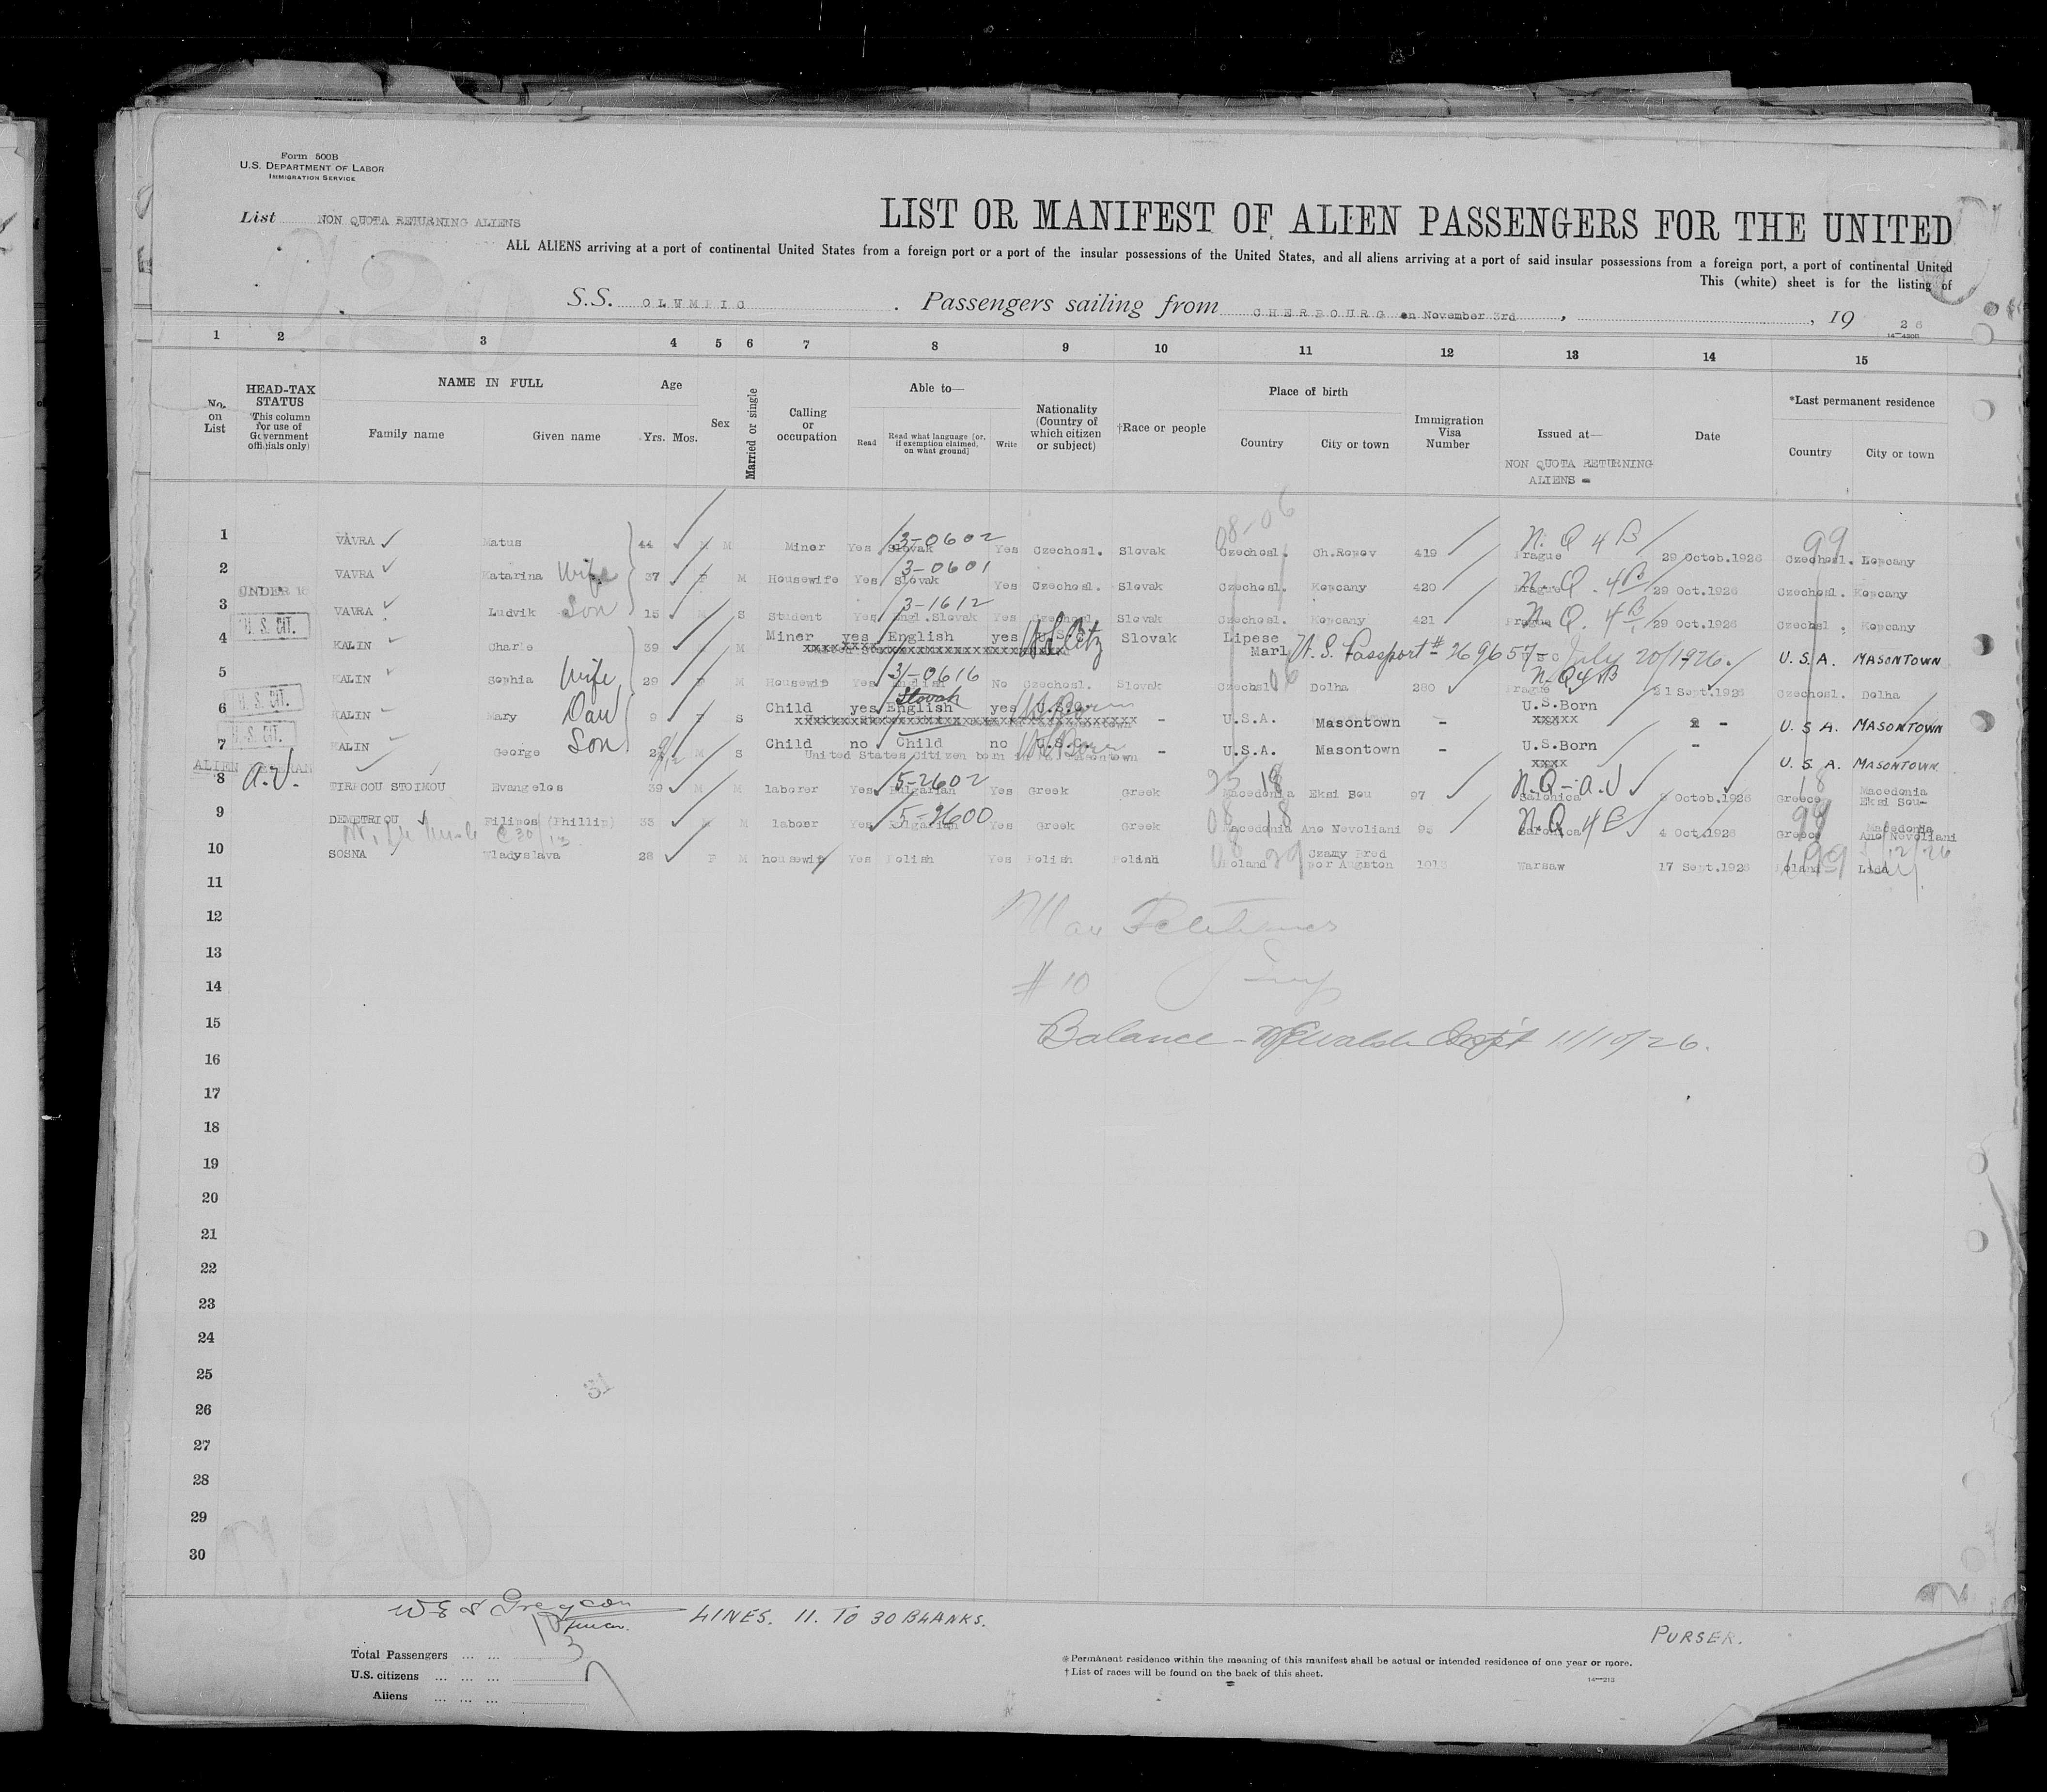 Form 500B
U.S. DEPARTMENT OF LABOR
IMMIGRATION SERVICE
List NON QUOTA RETURNING ALIENS
LIST OR MANIFEST OF ALIEN PASSENGERS FOR THE UNITED
ALL ALIENS arriving at a port of continental United States from a foreign port or a port of the insular possessions of the United States, and all aliens arriving at a port of said insular possessions from a foreign port, a port of continental United
This (white) sheet is for the listing of
S.S. OLYMPIC . Passengers sailing from CHERBOURG on November 3rd , , 19 26
1 2 3 4 5 6 7 8 9 10 11 12 13 14 15
No. on List HEAD-TAX STATUS (This column for use of Government officials only) NAME IN FULL Family name Given name Age Yrs. Mos. Sex Married or single Calling or occupation Able to— Read Read what language [or, if exemption claimed, on what ground] Write Nationality (Country of which citizen or subject) †Race or people Place of birth Country City or town Immigration Visa Number Issued at— Date *Last permanent residence Country City or town
NON QUOTA RETURNING ALIENS =
08-06
1 VAVRA Matus 44 M M Miner Yes Slovak 3-0602 Yes Czechosl. Slovak Czechosl. Ch.Ropov 419 N.Q 4B Prague 29 Octob.1926 99 Czechosl. Kopcany
2 VAVRA Katarina Wife 37 F M Housewife Yes Slovak 3-0601 Yes Czechosl. Slovak Czechosl. Kopcany 420 N.Q. 4B Prague 29 Oct.1926 Czechosl. Kopcany
UNDER 16
3 VAVRA Ludvik Son 15 M S Student Yes Engl.Slovak 3-1612 Yes Czechosl. Slovak Czechosl. Kopcany 421 N.Q. 4B Prague 29 Oct.1926 Czechsl. Kopcany
U. S. CIT.
4 KALIN Charle 39 M Miner yes English yes U.S. Citz Slovak Lipese Marl U.S. Passport # 269657 - July 20/1926. U.S.A. MASONTOWN
5 KALIN Sophia Wife 29 F M Housewife Yes English 3-0616 Slovak No Czechosl. Slovak Czechsl 06 Dolha 280 N.Q 4B Prague 21 Sept.1926 Czechosl. Dolha
U. S. CIT.
6 KALIN Mary Dau 9 F S Child yes English yes U.S.C. US Born - U.S.A. Masontown - U.S.Born xxxxx - U.S.A. MASONTOWN
U. S. CIT.
7 KALIN George Son 2 M S Child no Child no U.S.C. US Born - U.S.A. Masontown - U.S.Born xxxx - U.S.A. MASONTOWN
United States Citizen born in Masontown
ALIEN VETERAN
8 A.V. Evangelos 39 M M laborer Yes Bulgarian 5-2602 Yes Greek Greek Macedonia 18 Eksi Sou 97 N.Q-A.V Salonica Octob.1926 18 Greece Macedonia Eksi Sou-
9 DEMETRIOU Filipos (Phillip) M M laborer Yes Bulgarian 5-2600 Yes Greek Greek 08 Macedonia 18 Ano Nevoliani 95 N.Q 4B Salonica 4 Oct.1926 99 Greece Macedonia Ano Nevoliani
10 SOSNA Wladyslava 28 F M housewife Yes Polish Yes Polish Polish 08 Poland 29 Czamy Bred Warsaw 17 Sept.1926 99 Poland Lida
11
12
13
14 # 10
15 Balance - 11/10/26.
16
17
18
19
20
21
22
23
24
25
51
26
27
28
29
30
LINES. 11. TO 30 BLANKS.
PURSER.
Total Passengers ... ... 10
U.S. citizens ... ... ... 3
Aliens ... ... ... 7
*Permanent residence within the meaning of this manifest shall be actual or intended residence of one year or more.
†List of races will be found on the back of this sheet.
14—213